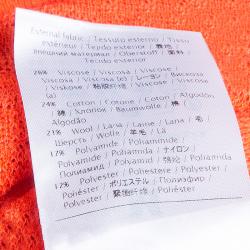 External fabric / Tessuto esterno / Tissu
extérieur / Tejido exterior / 表地 /
внешний материал / Oberstoff / 面料 /
Tecido exterior
26% Viscose / Viscosa / Viscose /
Viscosa / Viscosa (e) / レーヨン / Вискоза
/ Viskose / 粘胶纤维 / Viscose
24% Cotton / Cotone / Coton / Algodón
/ 綿 / Хлопок / Baumwolle / 棉 /
Algodão
21% Wool / Lana / Laine / Lana / 毛 /
Шерсть / Wolle / 羊毛 / Lã
17% Polyamide / Poliammide /
Polyamide / Poliamida / ナイロン /
Полиамид / Polyamid / 锦纶 / Poliamida
12% Polyester / Poliestere / Polyester /
Poliéster / ポリエステル / Полиэфир /
Polyester / 聚酯纤维 / Poliéster